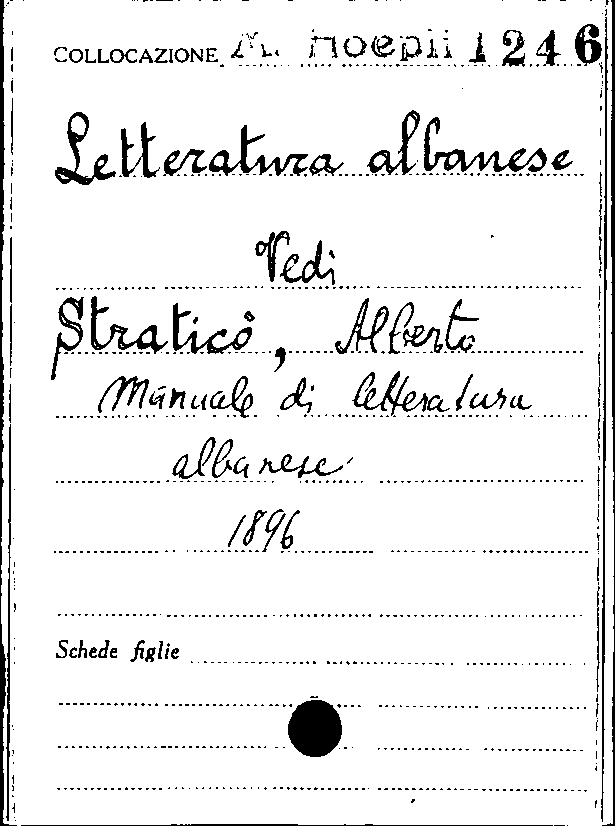 COLLOCAZIONE M. Hoepli 1246
Letteratura albanese
Vedi
Straticò, Alberto
Manuale di letteratura
albanese
1896
Schede figlie